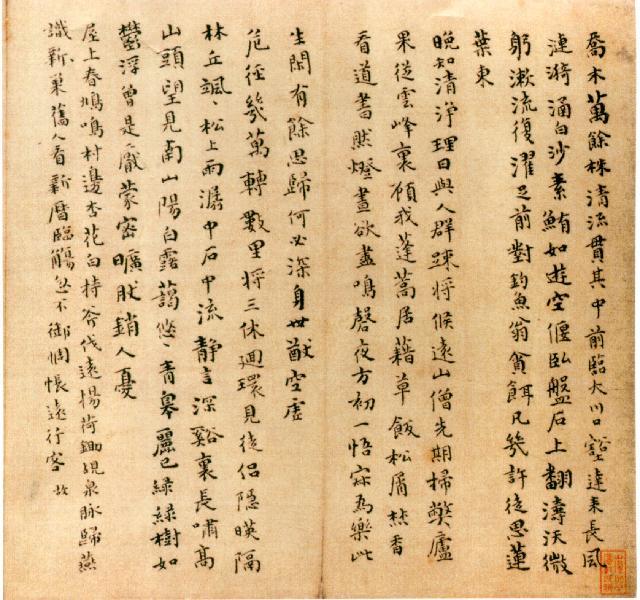 喬木萬餘株清流貫其中前臨大川口豁達來長風
漣漪涵白沙素鮪如遊空偃臥盤石上翻濤沃微
躬漱流復濯足前對釣魚翁貪餌凡幾許徒思蓮
葉東
晚知清淨理日與人群踈將候遠山僧先期掃獘廬
果從雲峰裏顧我蓬蒿居藉草飯松屑焚香
看道書然燈晝欲盡鳴磬夜方初一悟寂為樂此
生閑有餘思歸何必深身世猷空虛
危徑幾萬轉數里將三休迴環見徒侶隱暎隔
林丘颯〻松上雨潺中石中流靜言深谿裏長嘯高
山頭望見南山陽白露藹悠〻青皋麗已綠綠樹如
鬱浮曾是厭蒙密曠然銷人憂
屋上春鳩鳴村邊杏花白持斧伐遠揚荷鋤覘泉脉歸燕
識新巢舊人看新曆臨觴忽不御惆悵遠行客